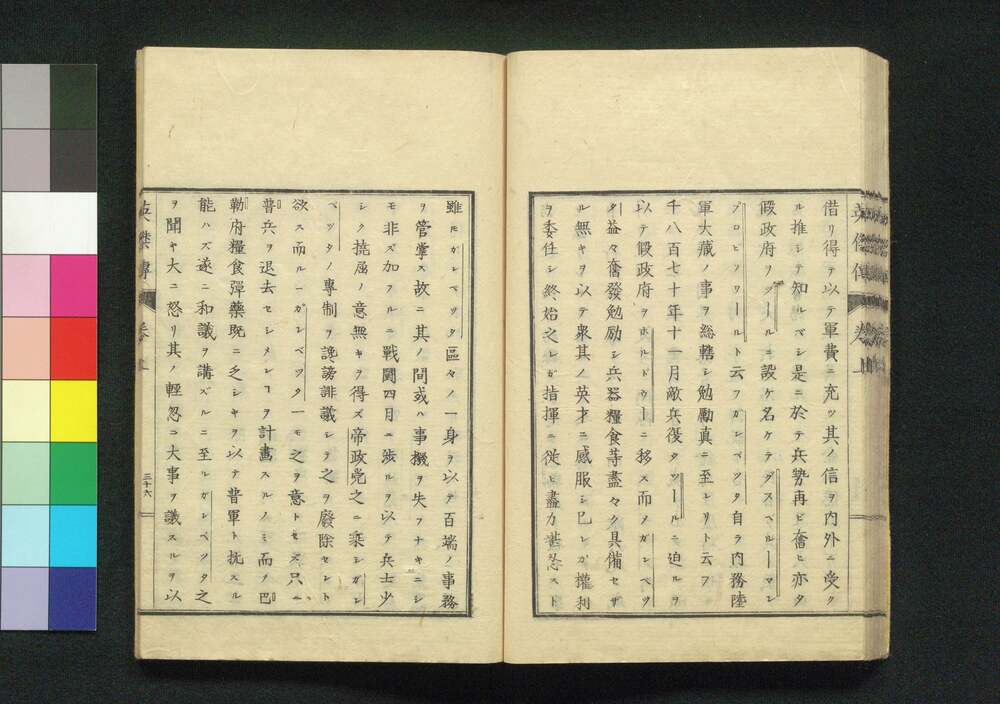 借リ得テ以テ軍費ニ充ツ其ノ信ヲ内外ニ受ク
ル推シテ知ルベシ是ニ於テ兵勢再ビ奮ヒ亦タ
假政府ヲツールニ設ケ名ケテグスベルーマン
プロビソリールト云フガンベツタ自ラ内務陸
軍大藏ノ事ヲ総轄シ勉勵真ニ至レリト云フ
千八百七十年十一月敵兵復タツールニ迫ルヲ
以テ假政府ヲホルドウーニ移ス而メガンベツ
タ益々奮發勉励シ兵器糧食等盡々ク具備セザ
ル無キヲ以テ衆其ノ英才ニ感服シ己レガ權利
ヲ委任シ終始之レガ指揮ニ従ヒ盡力
雖ルガンベツタ區々ノ一身ヲ以テ百端ノ事務
ヲ管掌ス故ニ其ノ間或ハ事機ヲ失フナキニシ
モ非ズ加フルニ戦闘四月ニ渉ルヲ以テ兵士少
シク撓屈ノ意無キヲ得ズ帝政党之ニ乗シガン
ベツタノ専制ヲ讒謗誹議シ之ヲ廢除セント
欲ス而ルーガンベツタ一モ之ヲ意トセズ只
普兵ヲ退去セシメンコヲ計畵スルノミ而ヲ巴
勒府糧食彈藥既ニ乏シキヲ以テ普軍ト抗スル
能ハズ遂ニ和議ヲ講ズルニ至ルガンベツタ之
ヲ聞キ大ニ怒リ其ノ輕忽ニ大事ヲ議スルヲ以
英傑傳
卷上
三十六